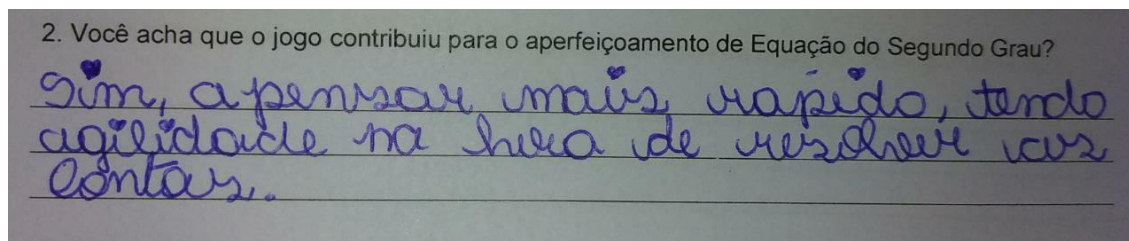 2. Você acha que o jogo contribuiu para o aperfeiçoamento de Equação do Segundo Grau?
Sim, a pensar mais rápido, tendo
agilidade na hora de resolver as
contas.